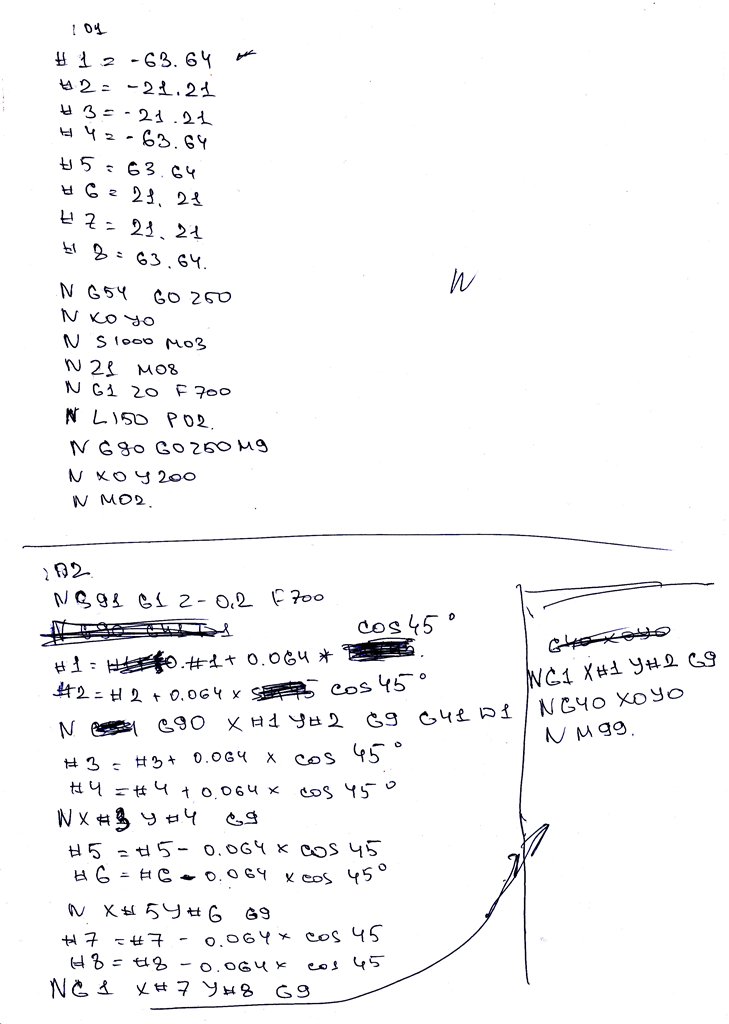 :01
#1 = -63.64
#2 = -21.21
#3 = -21.21
#4 = -63.64
#5 = 63.64
#6 = 21.21
#7 = 21.21
#8 = 63.64.
N G54 G0 Z50
N X0 Y0
N S1000 M03
N Z1 M08
N G1 Z0 F700
N L150 P02.
N G90 G0 Z50 M9
N X0 Y200
N M02.
N
:02
N G91 G1 Z-0,2 F700
#1 = #1 + 0.064 * cos 45°
#2 = #2 + 0.064 x cos 45°
N G90 X#1 Y#2 G9 G41 D1
#3 = #3 + 0.064 x cos 45°
#4 = #4 + 0.064 x cos 45°
N X#3 Y#4 G9
#5 = #5 - 0.064 x cos 45
#6 = #6 - 0.064 x cos 45°
N X#5 Y#6 G9
#7 = #7 - 0.064 x cos 45
#8 = #8 - 0.064 x cos 45
N G1 X#7 Y#8 G9
G40 X0Y0
N G1 X#1 Y#2 G9
N G40 X0Y0
N M99.